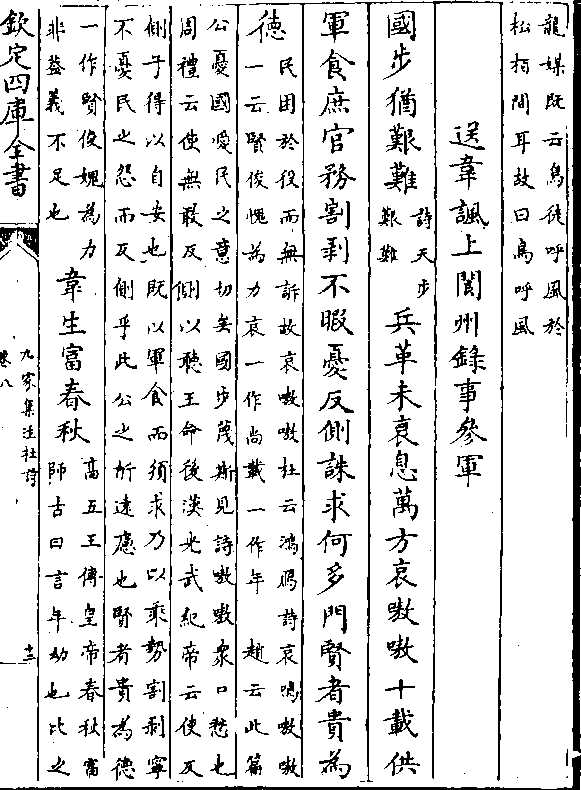 龍媒既云鳥徒呼風於
松栢間耳故曰鳥呼風
送韋諷上閬州錄事參軍
國步猶艱難
詩天步
艱難
兵革未衰息萬方哀嗷嗷十載供
軍食庶官務割剥不暇憂反側誅求何多門賢者貴為
德
民困於役而無訴故哀嗷嗷杜云鴻鴈詩哀鳴嗷嗷
一云賢俊愧為力哀一作尚載一作年 趙云此篇
公憂國愛民之意切矣國步蔑斯見詩嗷嗷衆口愁也
周禮云使無敢反側以聽王命後漢光武紀帝云使反
側子得以自安也既以軍食而須求乃以乘勢割剥寧
不憂民之怨而反側乎此公之所逺慮也賢者貴為德
一作賢俊媿為力
非益義不足也
韋生富春秋
高五王傳皇帝春秋富
師古曰言年幼也比之
欽定四庫全書
九家集注杜詩
卷八
十二